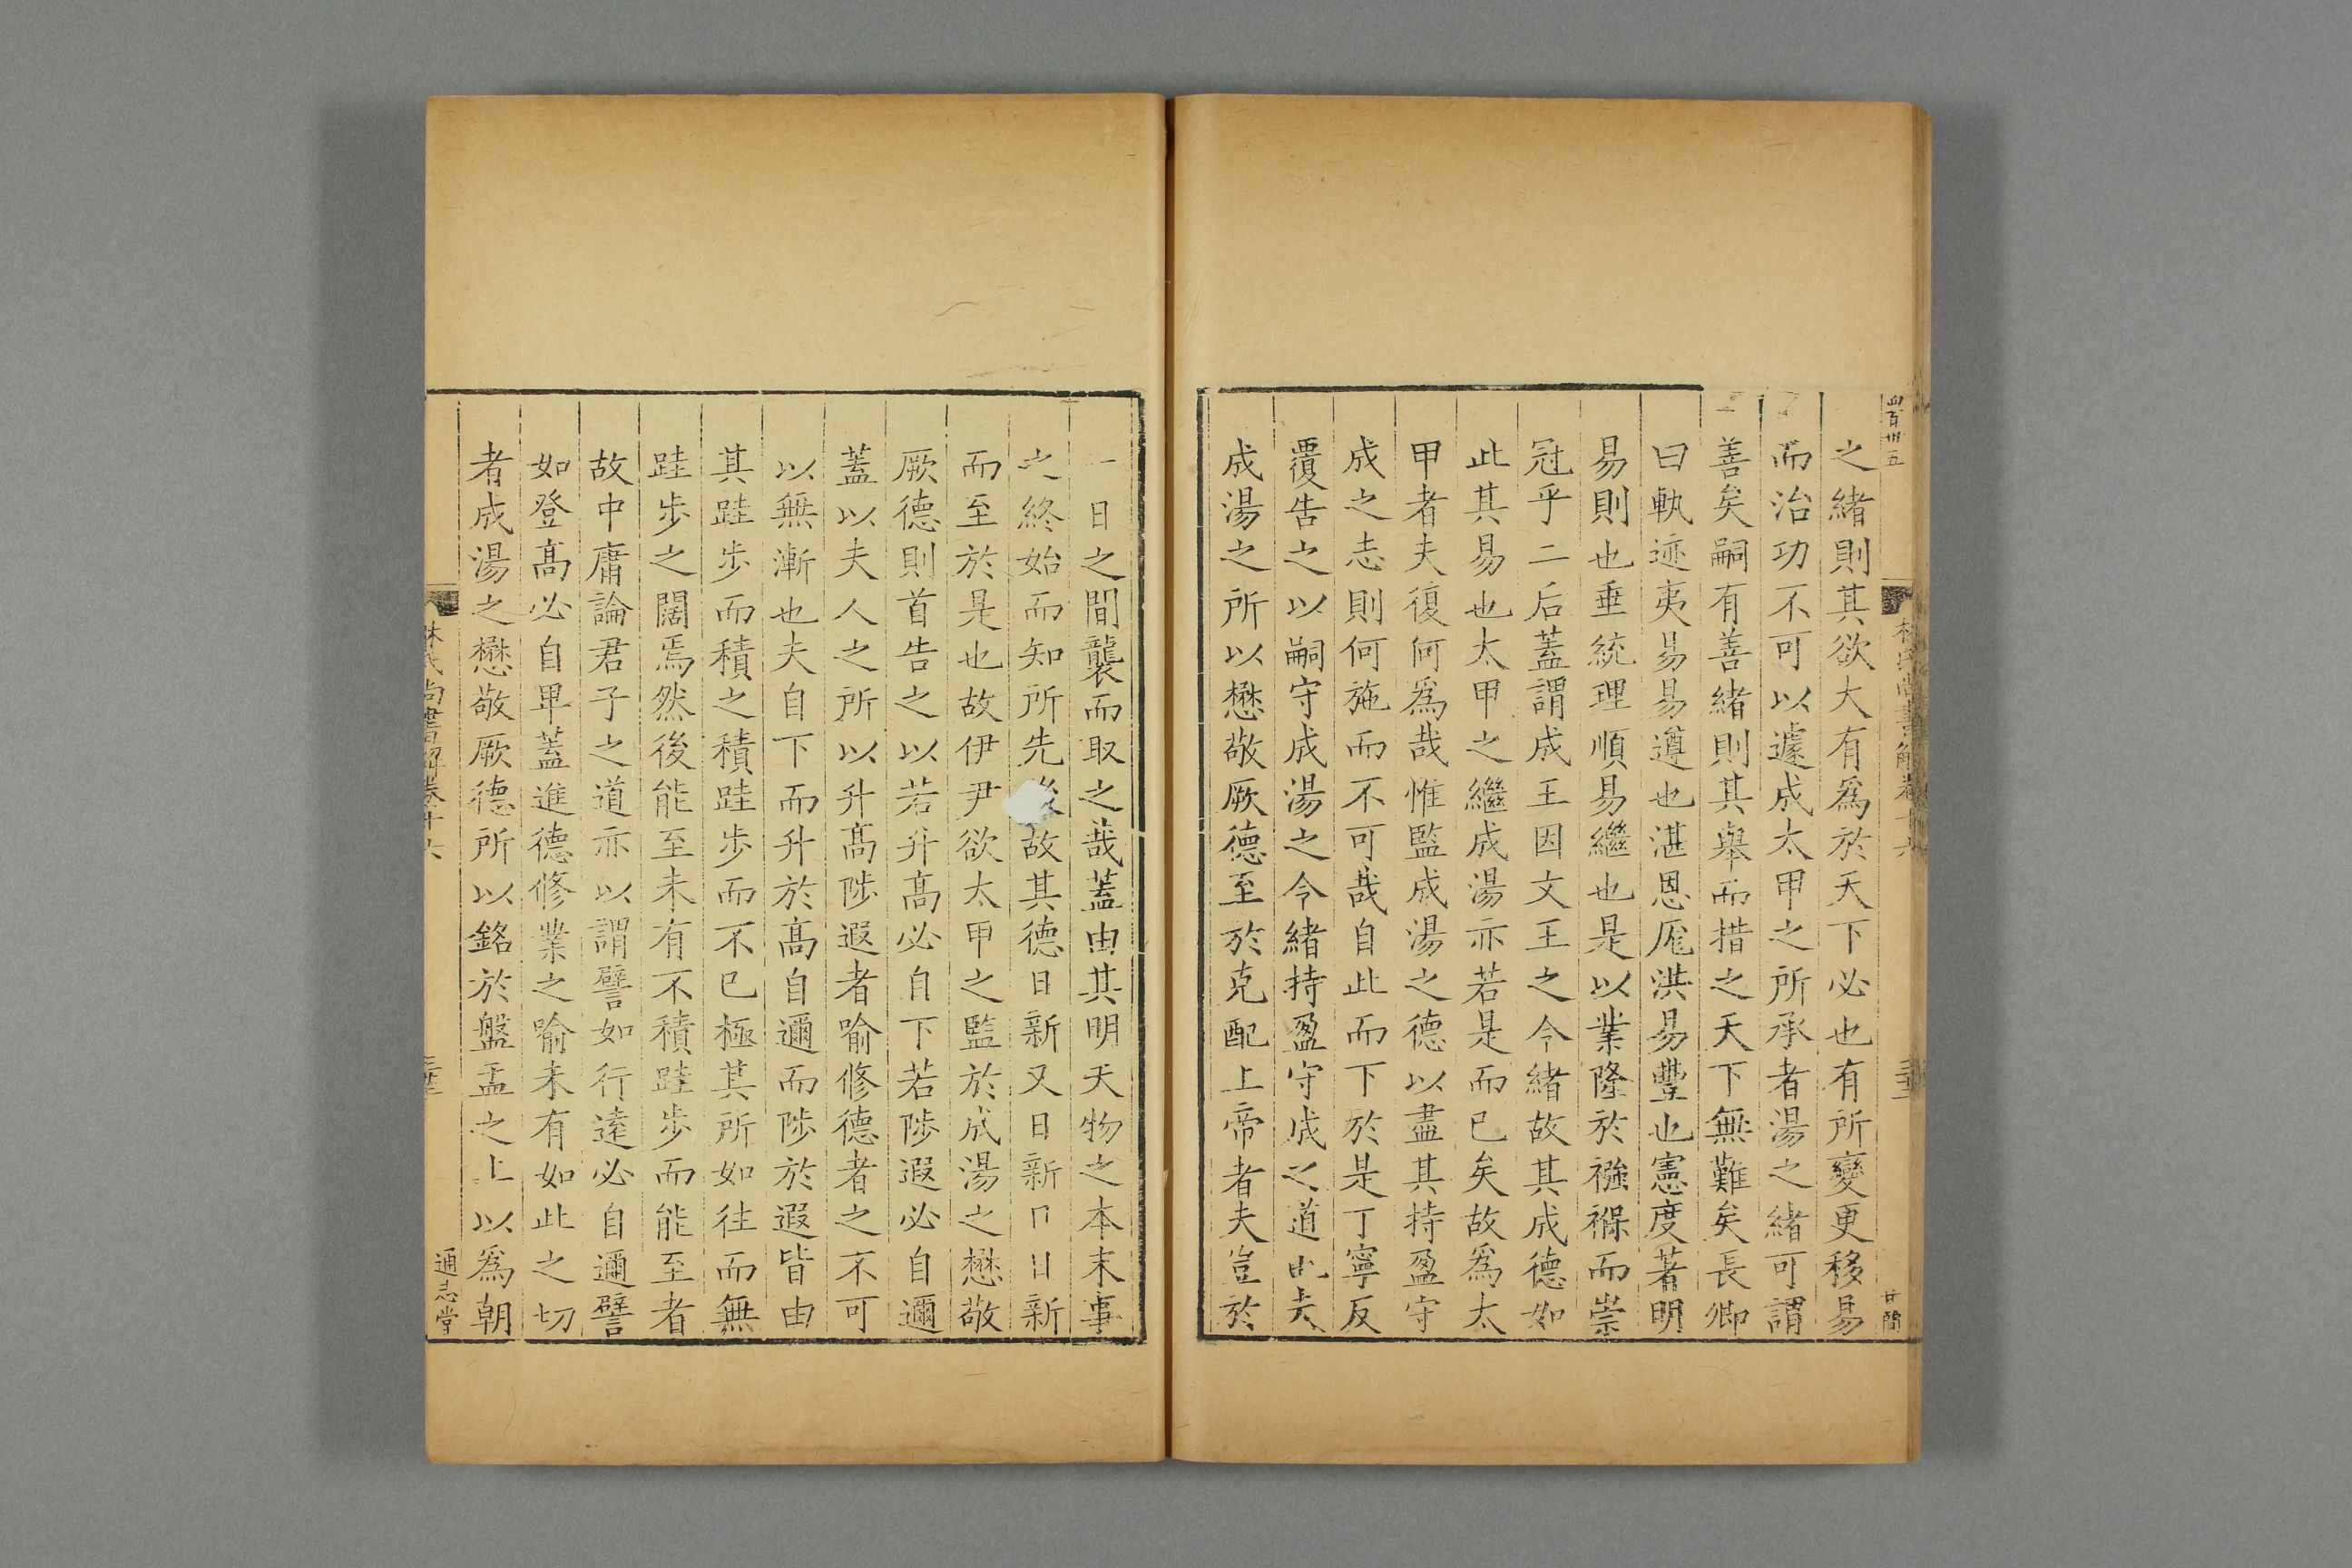 四百卅五
林氏尚書解卷十六
廿簡
之緒則其欲大有爲於天下必也有所變更移易
而治功不可以遽成太甲之所承者湯之緒可謂
善矣嗣有善緒則其舉而措之天下無難矣長卿
曰軌迹夷易易遵也湛恩厖洪易豐也憲度著明
易則也垂統理順易繼也是以業隆於襁褓而崇
冠乎二后蓋謂成王因文王之令緒故其成德如
此其易也太甲之繼成湯亦若是而已矣故爲太
甲者夫復何爲哉惟監成湯之德以盡其持盈守
成之志則何施而不可哉自此而下於是丁寧反
覆告之以嗣守成湯之令緒持盈守成之道也夫
成湯之所以懋敬厥德至於克配上帝者夫豈於
一日之間襲而取之哉蓋由其明天物之本末事
之終始而知所先後故其德日新又日新日日新
而至於是也故伊尹欲太甲之監於成湯之懋敬
厥德則首告之以若升高必自下若陟遐必自邇
蓋以夫人之所以升高陟遐者喻修德者之不可
以無漸也夫自下而升於高自邇而陟於遐皆由
其跬步而積之積跬步而不已極其所如往而無
跬步之闊焉然後能至未有不積跬步而能至者
故中庸論君子之道亦以謂譬如行遠必自邇譬
如登高必自卑蓋進德修業之喻未有如此之切
者成湯之懋敬厥德所以銘於盤盂之上以爲朝
林氏尚書解卷十六
通志堂